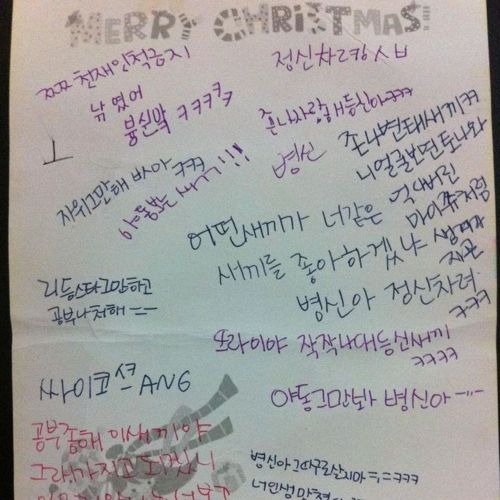 MERRY CHRISTMAS!
쯔쯔 천재인척금지
낚였어
붕신막 ㅋㅋㅋㅋ
정신차려 ㅅㅂ
존나사랑해등신아ㅋㅋㅋ
병신
존나변태새끼ㅋㅋ
니얼굴보면토나와
자위그만해 바아ㅋㅋㅋ
야동보는 새끼!!!
어떤새끼가 너같은
마이쮸처럼
생겨가
새끼를 좋아하겠냐
병신아 정신차려
ㅋㅋㅋ
리듬스타그만하고
공부나쳐해 ㅡㅡ
또라이야 작작나대등신새끼
ㅋㅋㅋㅋ
싸이코션ANG
야동그만봐 병신아
공부좀해 이새끼야
그래가지고
병신아그따구로살지마ㅋㅋㅋ
너인생